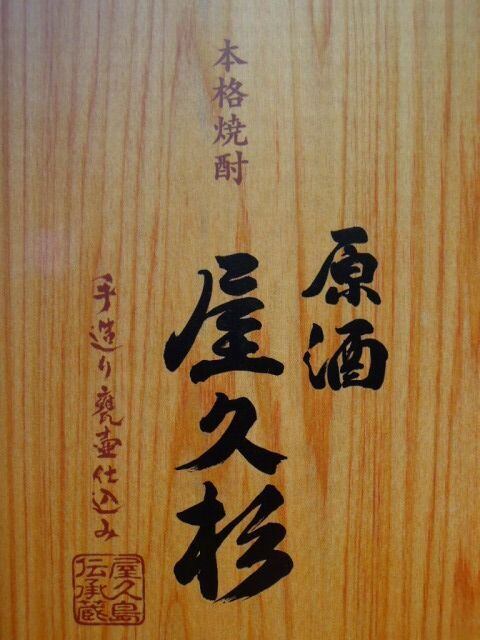 本格焼酎
原酒
屋久杉
手造り甕壷仕込み
屋久島
伝承蔵